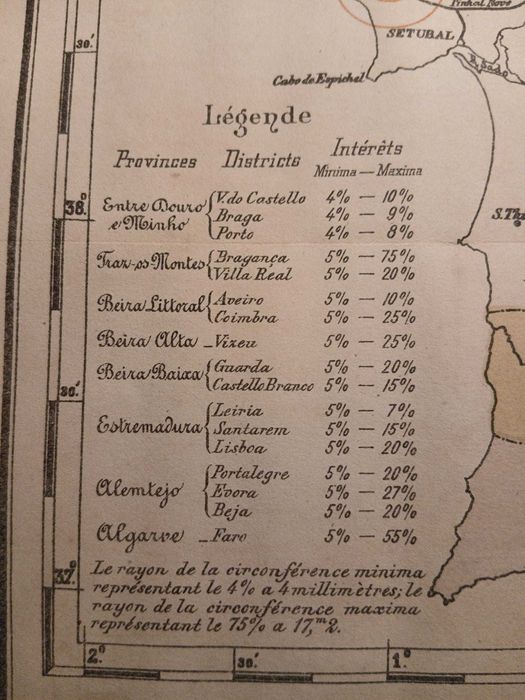 Pinhal Novo
SETUBAL
30.'
R. Sado
Cabo de Espichel
Légende
Provinces Districts Intérêts
Minima — Maxima
38.° Entre Douro e Minho { V. do Castello 4% — 10%
Braga 4% — 9%
Porto 4% — 8%
Traz-os-Montes { Bragança 5% — 75%
Villa Real 5% — 20%
Beira Littoral { Aveiro 5% — 10%
Coimbra 5% — 25%
Beira Alta - Vizeu 5% — 25%
Beira Baixa { Guarda 5% — 20%
Castello Branco 5% — 15%
30.'
Estremadura { Leiria 5% — 7%
Santarem 5% — 15%
Lisboa 5% — 20%
Alemtejo { Portalegre 5% — 20%
Evora 5% — 27%
Beja 5% — 20%
Algarve - Faro 5% — 55%
37.° Le rayon de la circonférence minima
représentant le 4% a 4 millimètres; le
rayon de la circonférence maxima
représentant le 75% a 17,ᵐ2.
2.° 30.' 1.°